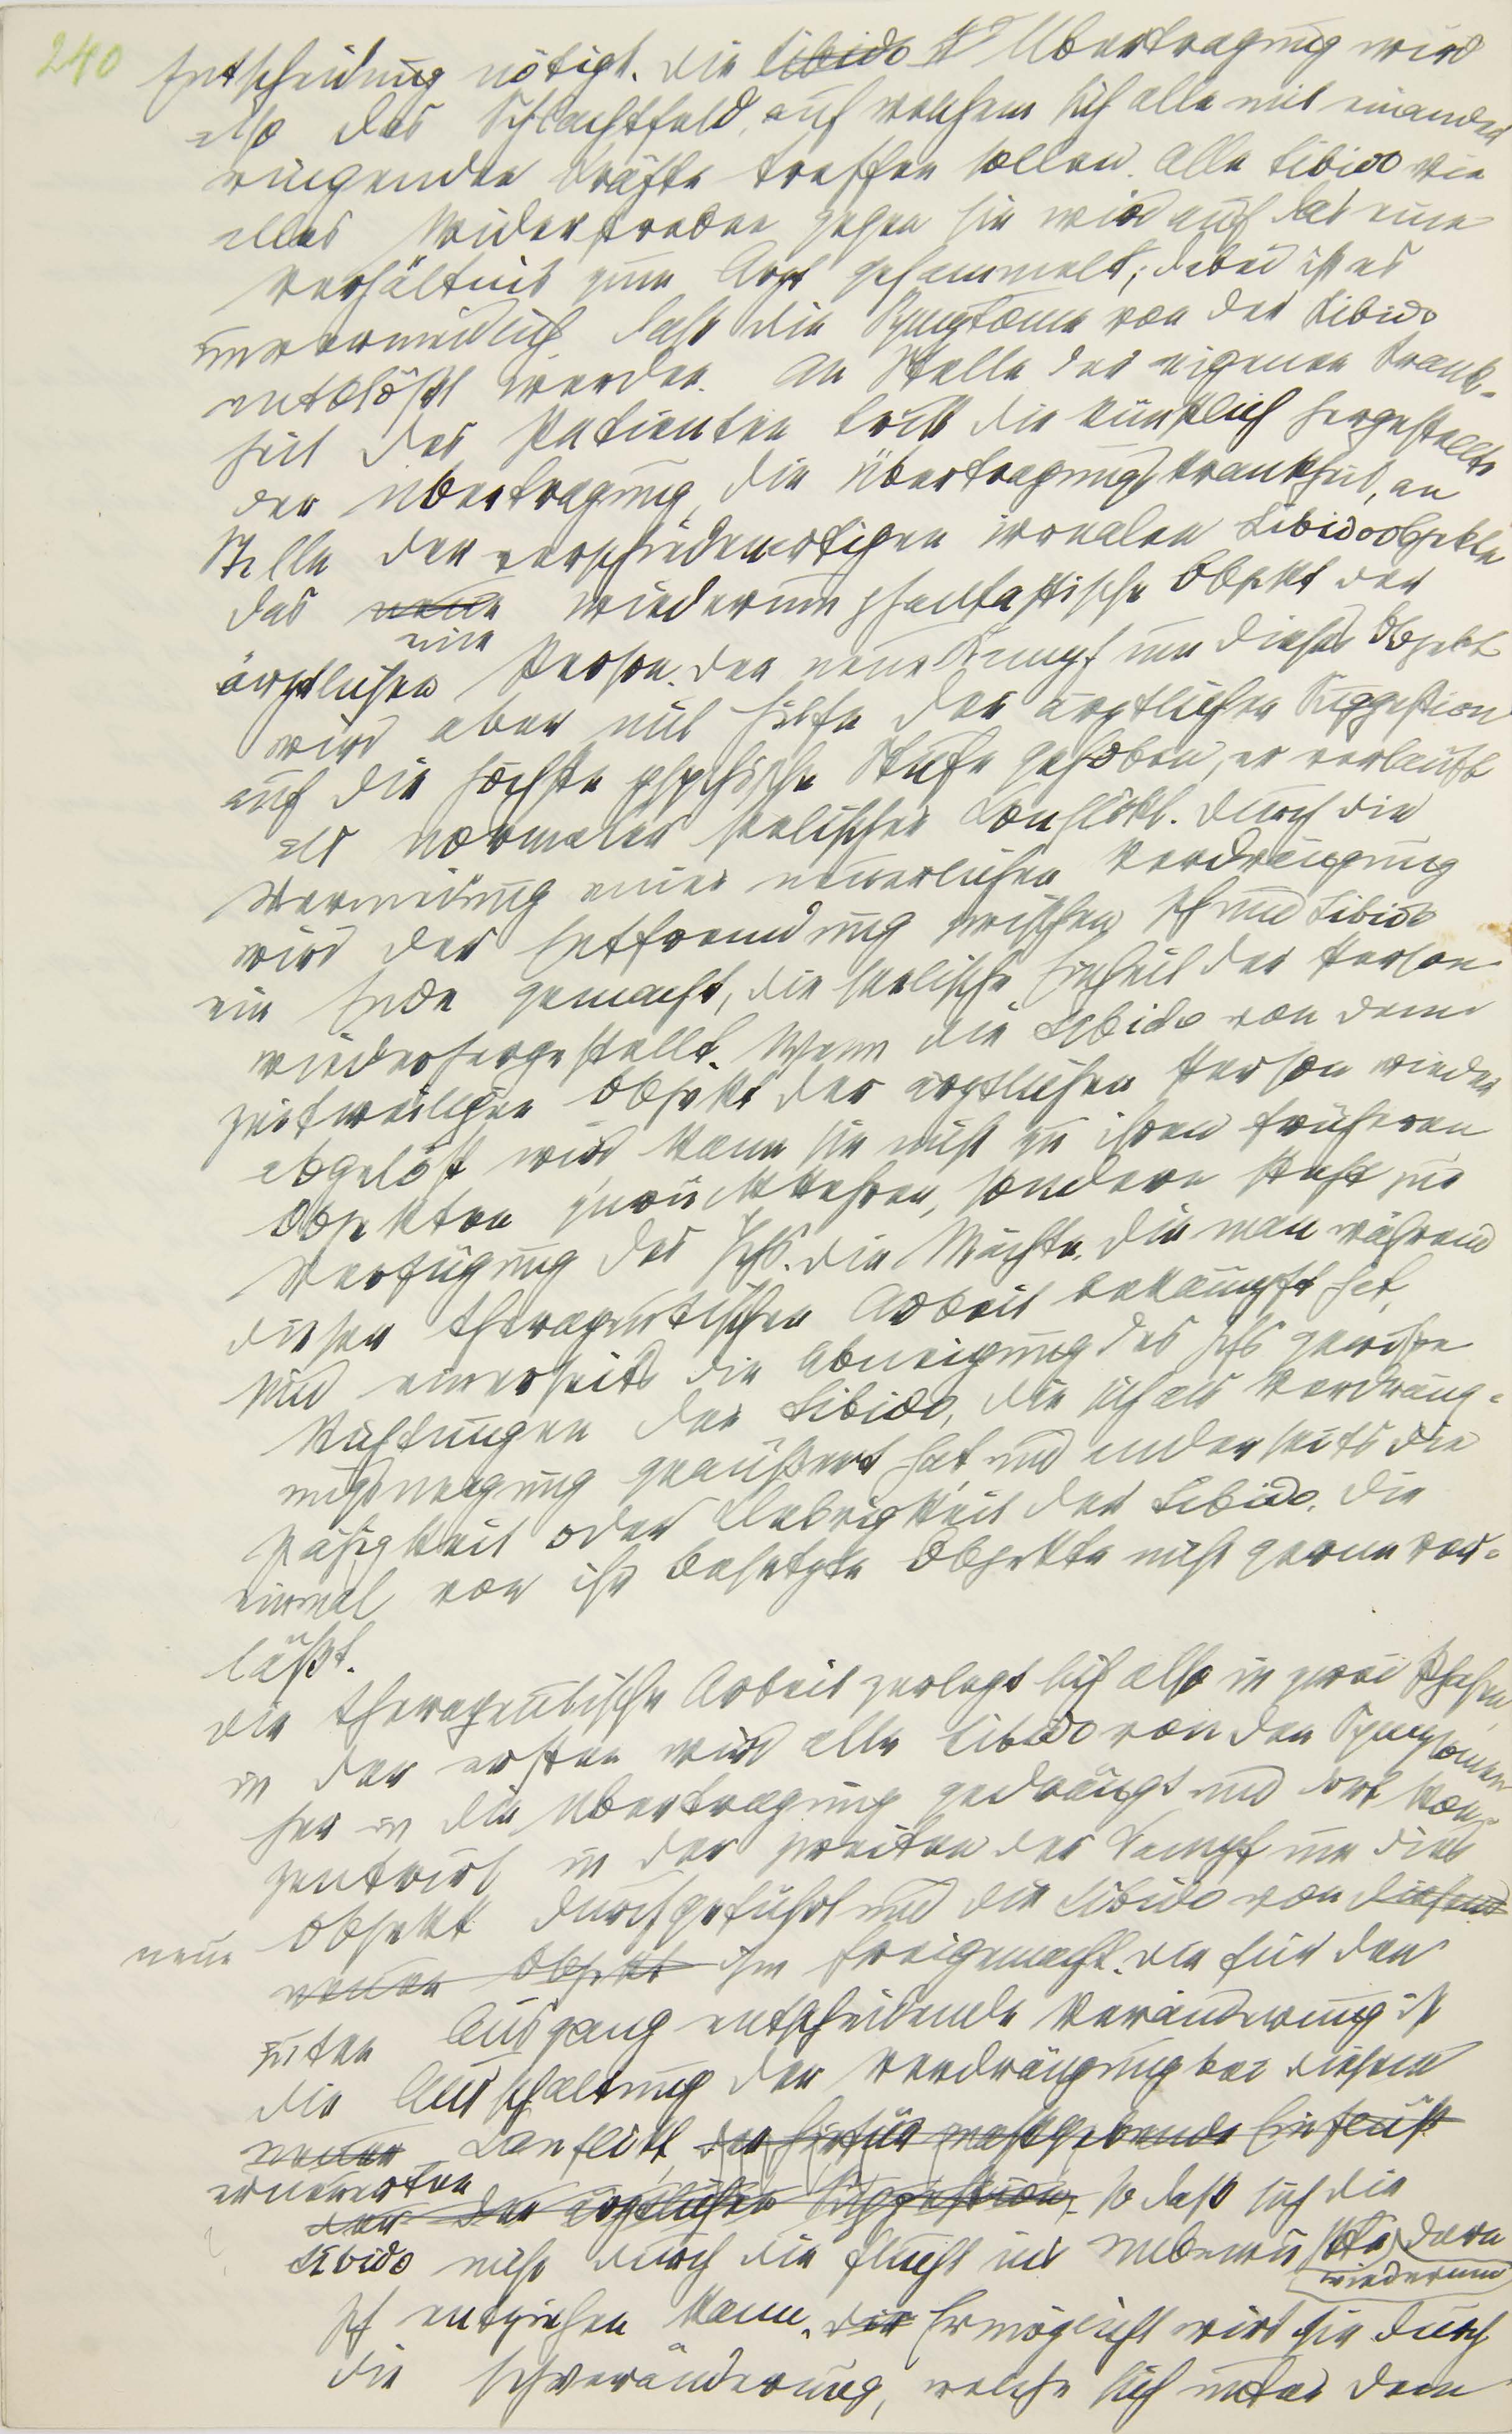 240
Entscheidung nötigt. Die Libido Übertragung wird
also das Schlachtfeld, auf welchem sich alle mit einander
ringenden Kräfte treffen sollen. Alle Libido wie
alles Widerstreben gegen sie wird auf das eine
Verhältnis zum Arzt gesammelt; dabei ist es
unvermeidlich daß die Symptome von der Libido
entblößt werden. An Stelle der eigenen Krank-
heit des Patienten tritt die künstlich hergestellte
der Übertragung, die Übertragungskrankheit, an
Stelle der verschiedenartigen irrealen Libidoobjekte
das eine wiederum phantastische Objekt der
ärztlichen Person. Der neue Kampf um dieses Objekt
wird aber mit Hilfe der ärztlichen Suggestion
auf die höchste psychische Stufe gehoben, er verläuft
als normaler seelischer Konflikt. Durch die
Vermeidung einer neuerlichen Verdrängung
wird der Entfremdung zwischen Ich und Libido
ein Ende gemacht, die seelische Einheit der Person
wiederhergestellt. Wenn die Libido von dem
zeitweiligen Objekt der ärztlichen Person wieder
abgelöst wird kann sie nicht zu ihren früheren
Objekten zurückkehren, sondern steht zur
Verfügung des Ichs. Die Mächte, die man während
dieser therapeutischen Arbeit bekämpft hat,
sind einerseits die Abneigung des Ichs gewisse
Richtungen der Libido, die sich als Verdräng-
ungsneigung geäußert hat und anderseits die
Zähigkeit oder Klebrigkeit der Libido, die
einmal von ihr besetzte Objekte nicht gerne ver-
läßt.
Die therapeutische Arbeit zerlegt sich also in zwei Phasen,
in der ersten wird alle Libido von den Symptomen
her in die Übertragung gedrängt und dort kon-
zentrirt, in der zweiten der Kampf um dies
neue Objekt durchgeführt und die Libido von diesem
neuen Objekt ihm freigemacht. Die für den
guten Ausgang entscheidende Veränderung ist
die Ausschaltung der Verdrängung bei diesem
neuen erneuerten Konflikt, der hiefür maßgebende Einfluß
der ärztlichen Suggestion, so daß sich die
Libido nicht durch die Flucht ins Unbewußte wiederum dem
Ich entziehen kann. Die Ermöglicht wird sie durch
die Ichveränderung, welche sich unter dem